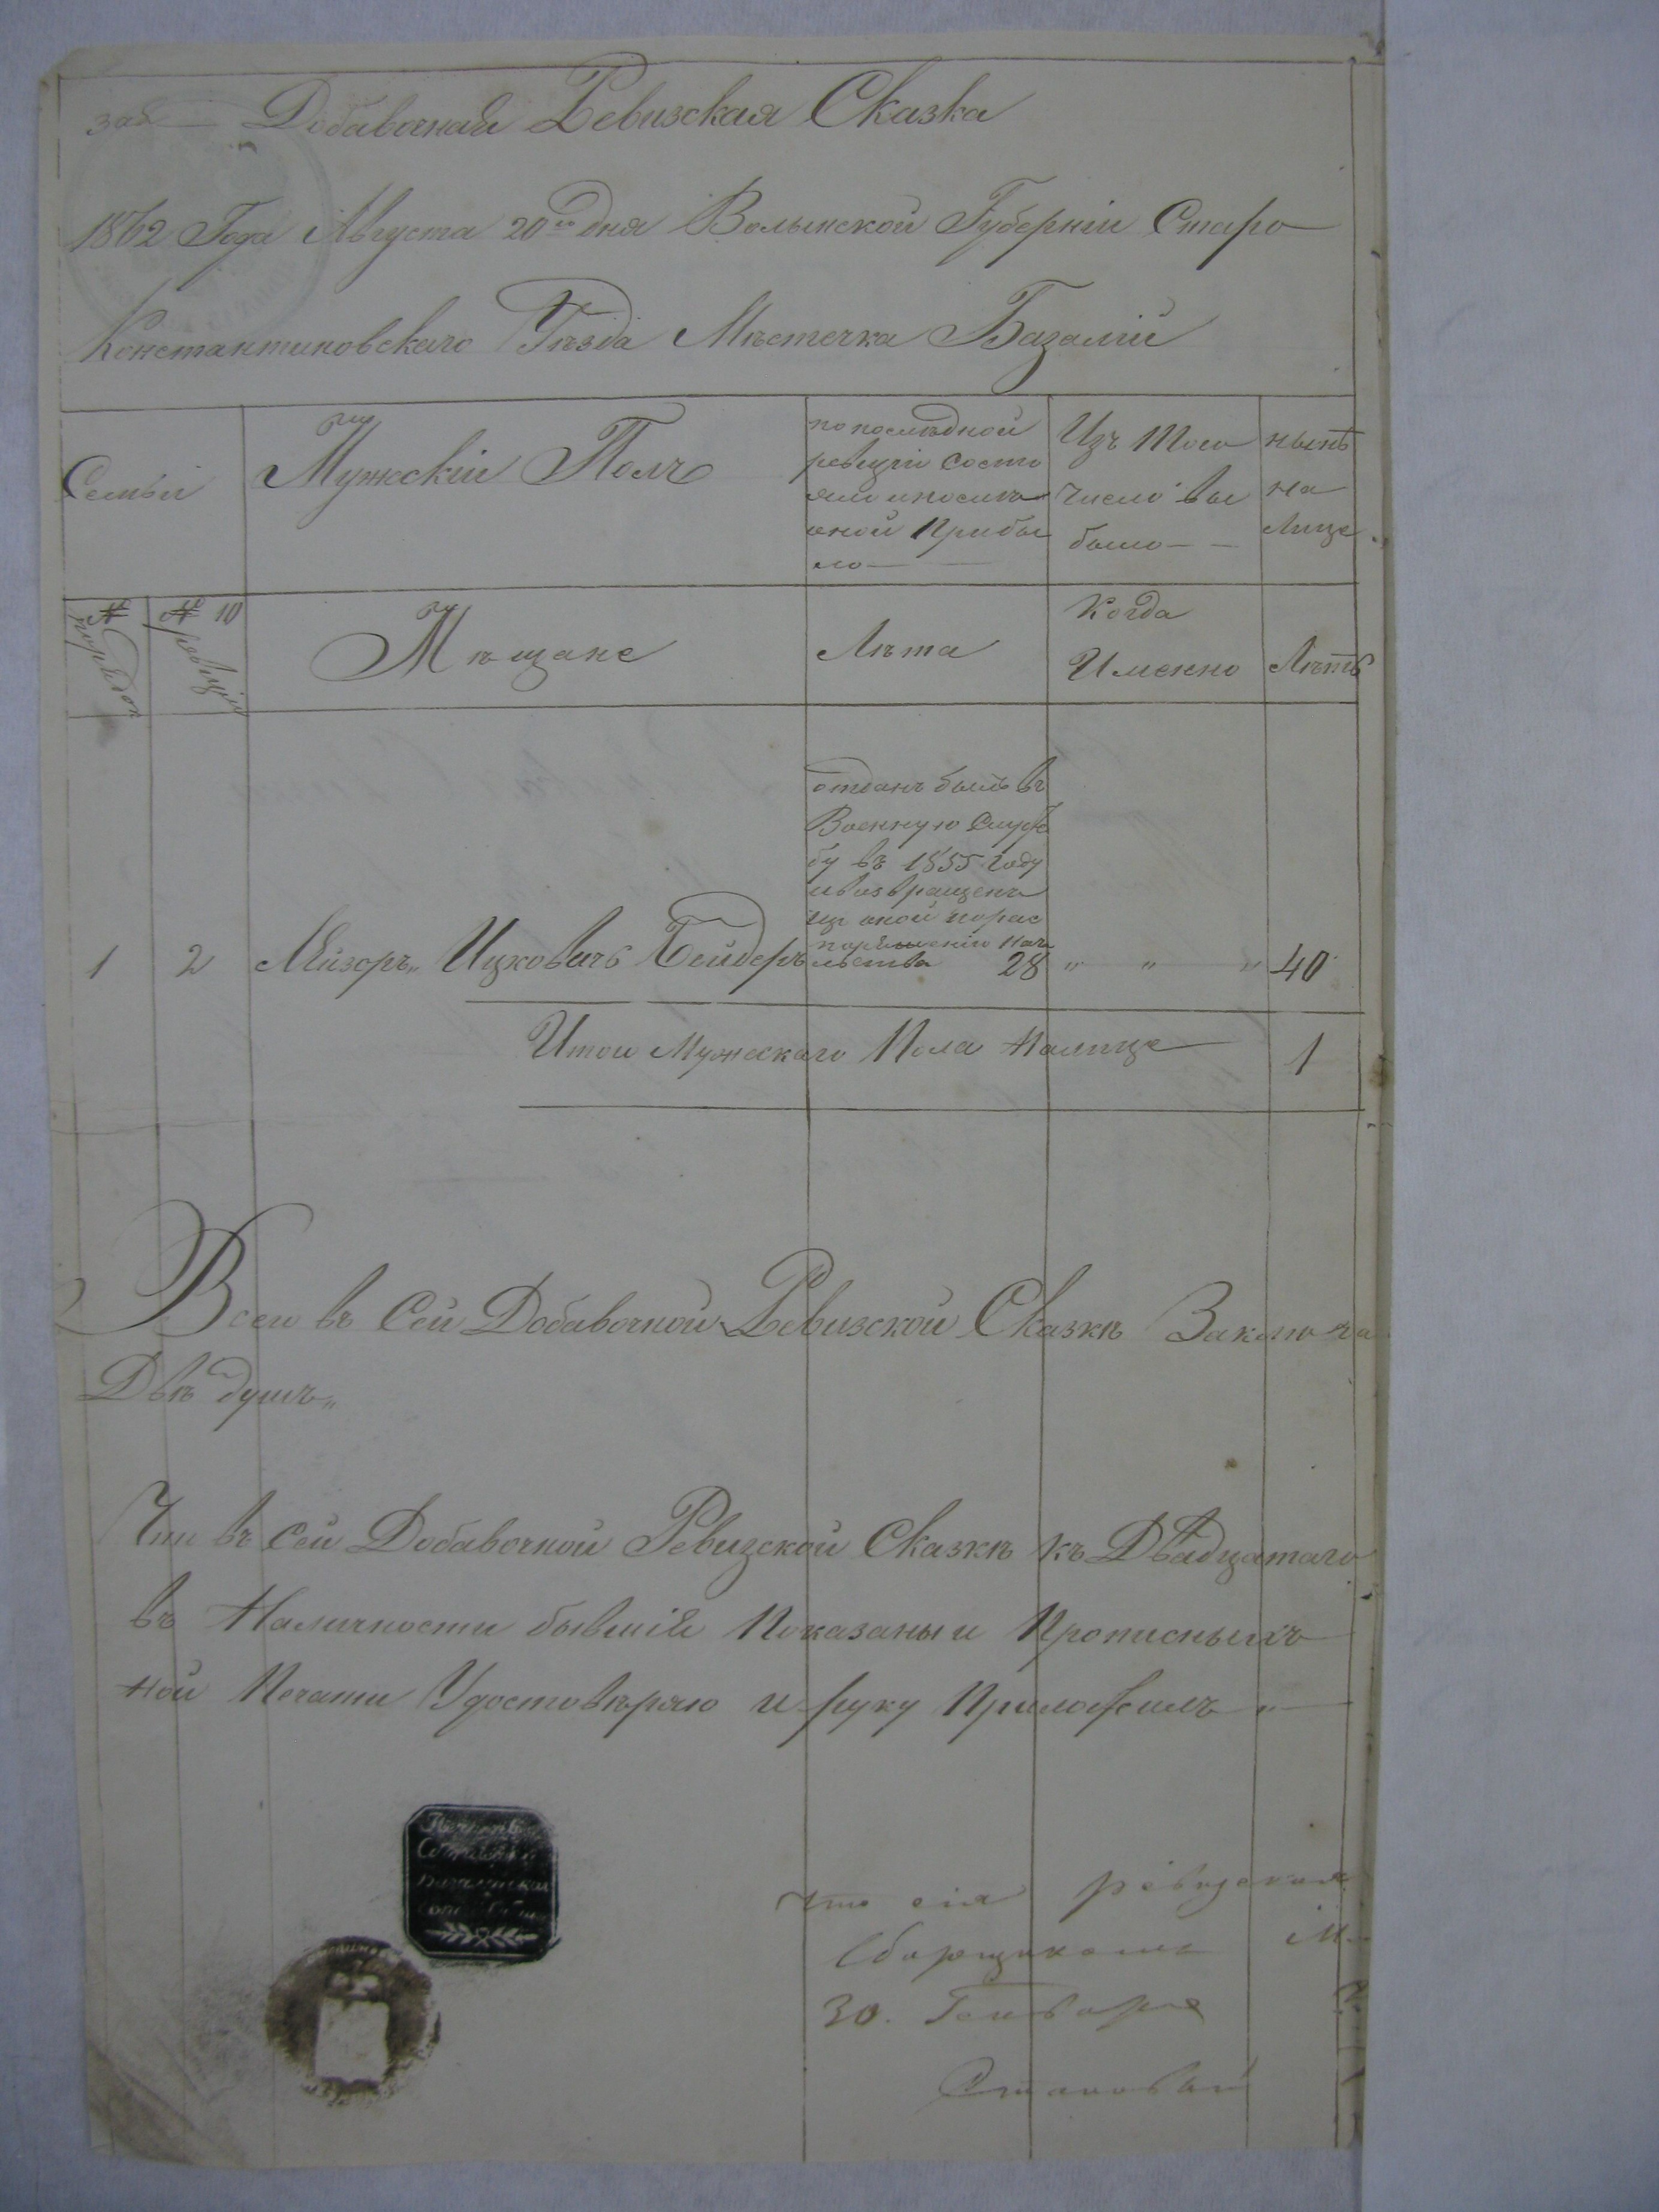 Добавочная Ревизская Сказка
1862 Года Августа 20го дня Волынской Губерніи Старо
Константиновскаго Уѣзда Мѣстечка Базаліи
Семьи
Мужскій Полъ
по послѣдной
ревизіи состо
яло и послѣ
оной Прибы
ло
Изъ Того
Число вы
было
нынѣ
на
Лице
№
порядок
№ 10
ревизіи
Мѣщане
Лѣта
Когда
Именно
Лѣтъ
отданъ былъ въ
Военную Служ
бу въ 1855 году
и возвращенъ
изъ оной по рас
1 2 Ицковичъ Бейдеръ 28 " " " 40
Итого Мужескаго Пола Налице 1
Всего въ Сей Добавочной Ревизской Сказкѣ Заключа
Двѣ душъ„
Что въ Сей Добавочной Ревизской Сказкѣ къ Двадцатаго
въ Наличности бывшій Показаны и Прописныхъ
ной Печати Удостовѣряю и руку Приложилъ „
что сія ревизская
Сборщиком М
30. Генваря
Становый